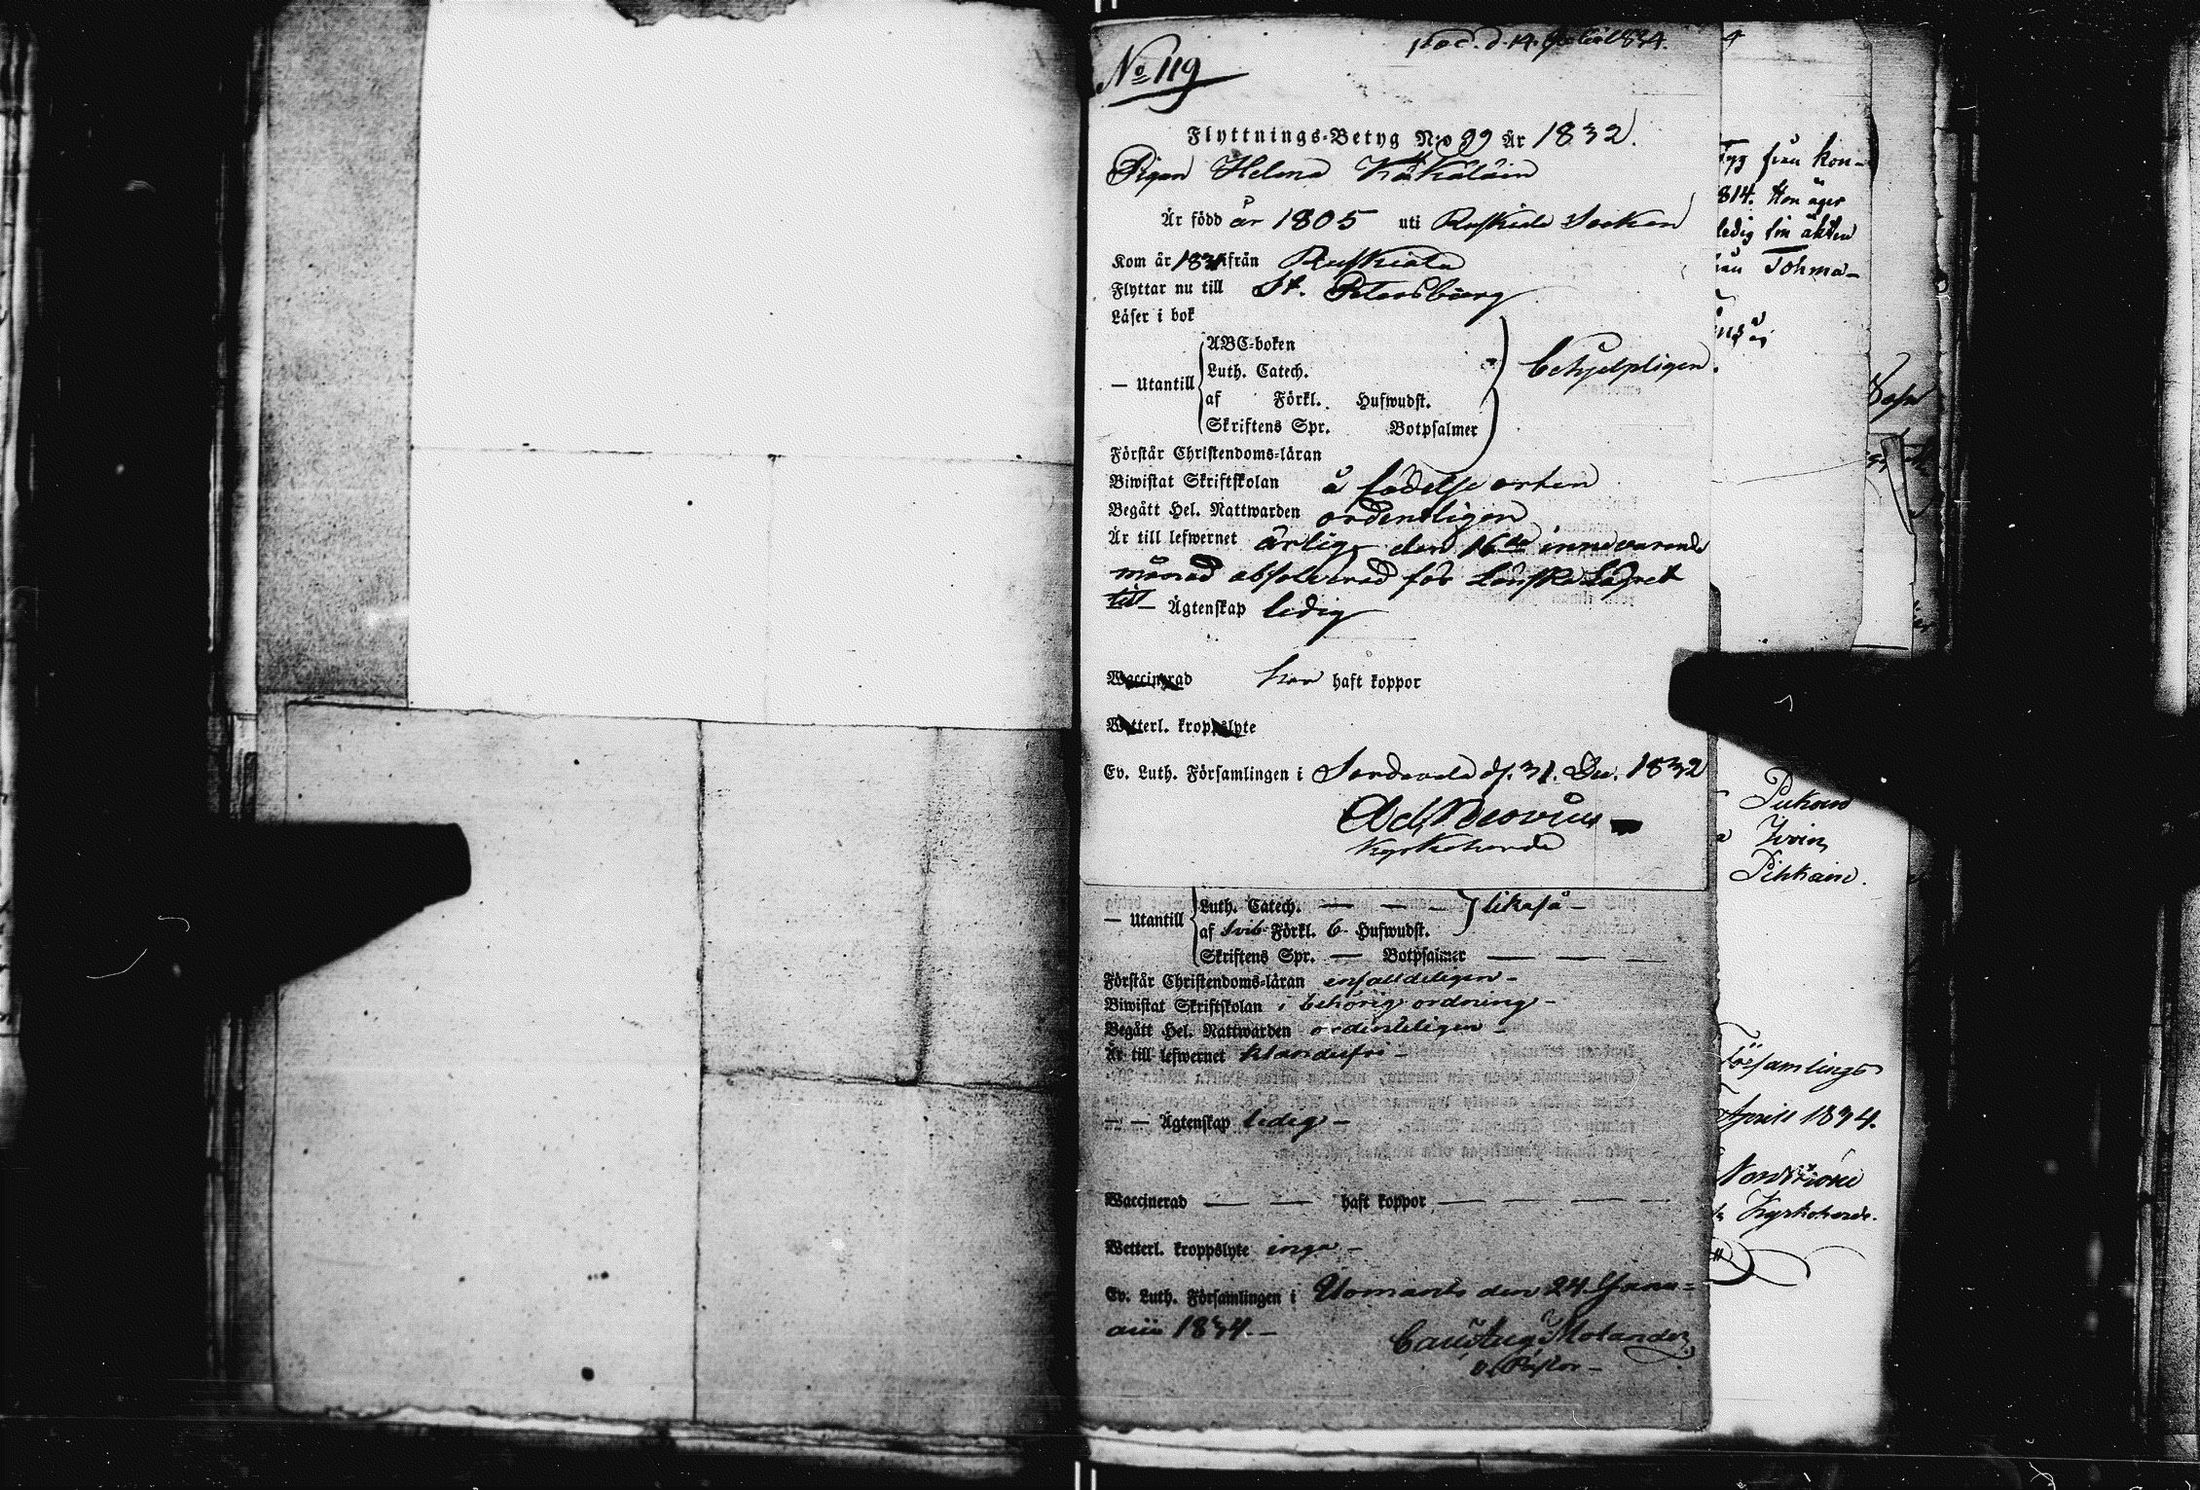 No 119
d. 14 1834.
Flyttnings-Betyg N:o 99 År 1832.
Pigan Helena
Är född år 1805 uti Ruskiala Socken
Kom år 1831 ifrån Ruskiala
Flyttar nu till St. Petersburg
Läser i bok
— Utantill
ABC-boken
Luth. Catech.
behjelpligen.
af Förkl. Hufwudst.
Skriftens Spr. Botpsalmer
Förstår Christendoms-läran
Biwistat Skriftskolan å födelse orten
Begått Hel. Nattwarden ordentligen
Är till lefwernet ärlig, den 16de innevarande
månad absolverad för Lönskaläget
till — Ägtenskap ledig
Waccinerad har haft koppor
Wetterl. kroppslyte
Ev. Luth. Församlingen i Sordavala d. 31. Dec. 1832
Ad. Neovius
Kyrkoherde
— Utantill
Luth. Catech. — — — likaså —
af Förkl. 6 Hufwudst.
Skriftens Spr. — Botpsalmer — — —
Förstår Christendoms-läran enfalldeligen —
Biwistat Skriftskolan i behörig ordning —
Begått Hel. Nattwarden ordenteligen —
Är till lefwernet klanderfri —
— — Ägtenskap ledig —
Waccinerad — — haft koppor — — — —
Wetterl. kroppslyte inga —
Ev. Luth. Församlingen i Ilomants den 24 Janu-
arii 1834. —
Carl Aug. Molander
v. Pastor —
från kon-
814. Hon äger
ledig sin äkten
Tohma-
Pukoin
Ivoin
Pihkain.
Församlings
April 1834.
Kyrkoherde.